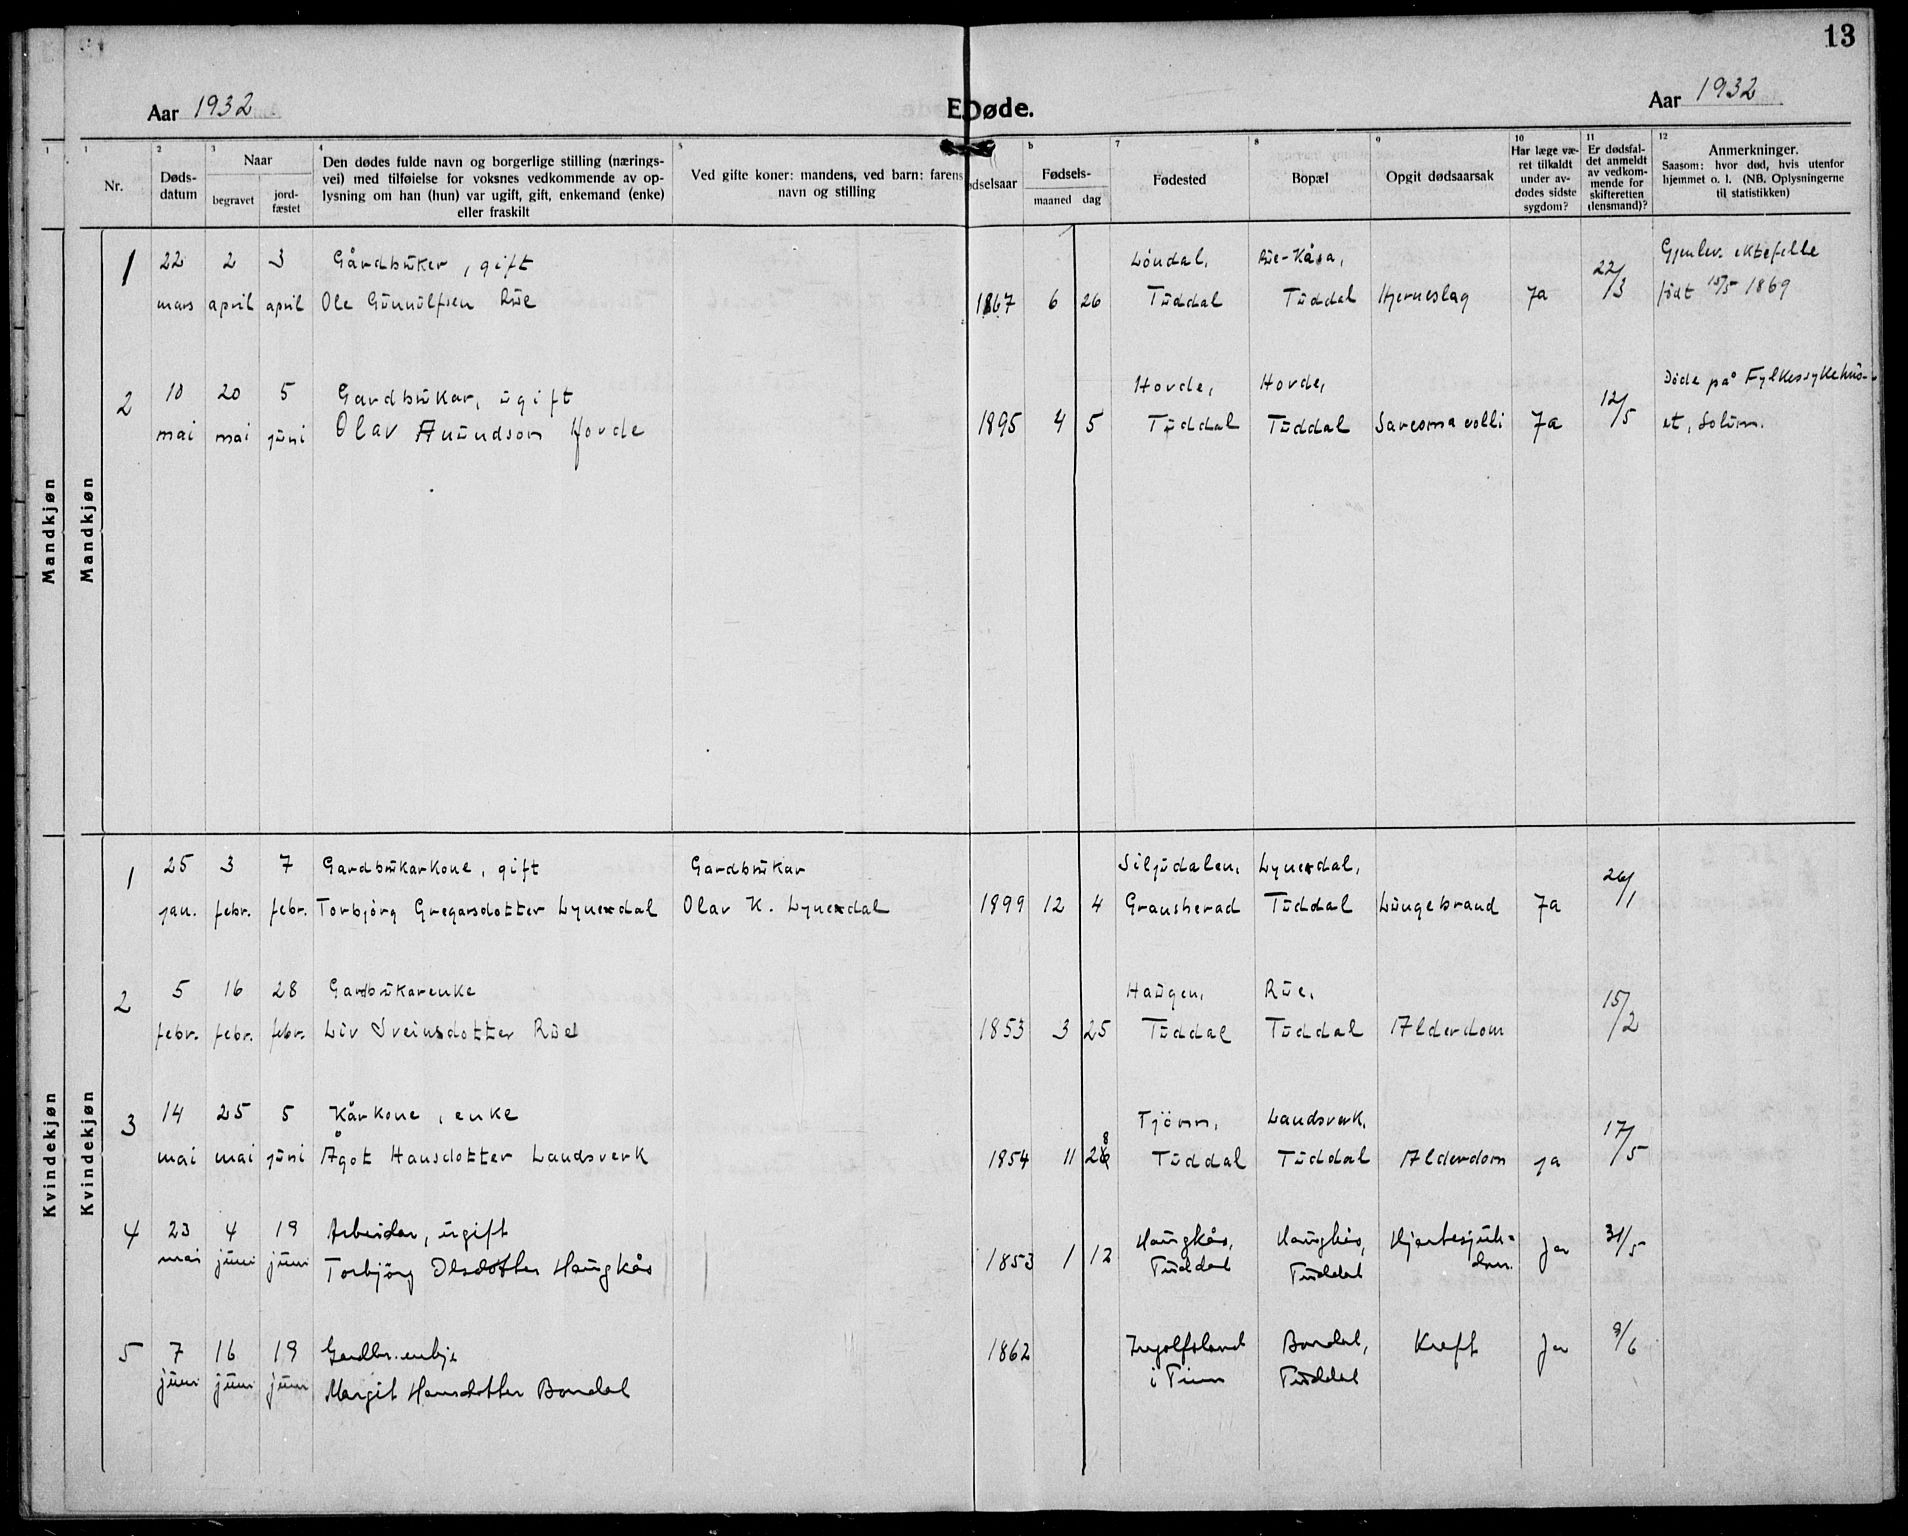 13
Aar 1932
E. Døde.
Aar 1932
1
1 2 3 4 5 6 7 8 9 10 11 12
Nr.
Døds-
datum
Naar
begravet
jord-
fæstet
Den dødes fulde navn og borgerlige stilling (nærings-
vei) med tilføielse for voksnes vedkommende av op-
lysning om han (hun) var ugift, gift, enkemand (enke)
eller fraskilt
Ved gifte koner: mandens, ved barn: farens
navn og stilling
ødselsaar
Fødsels-
maaned dag
Fødested
Bopæl
Opgit dødsaarsak
Har læge væ-
ret tilkaldt
under av-
dødes sidste
sygdom?
Er dødsfal-
det anmeldt
av vedkom-
mende for
skifteretten
(lensmand)?
Anmerkninger.
Saasom: hvor død, hvis utenfor
hjemmet o. l. (NB. Oplysningerne
til statistikken)
Mandkjøn
Mandkjøn
1 22 2 3 Gårdbruker, gift Løndal, Rue-Kåsa, 22/3 Gjenlev. ektefelle
mars april april Ole Gunnulfsen Rue 1867 6 26 Tuddal Tuddal Hjerneslag Ja født 15/5 1869
2 10 20 5 Gardbrukar, ugift Hovde, Hovde, 12/5 Døde på Fylkessykehus-
mai mai juni Olav Anundson Hovde 1895 4 5 Tuddal Tuddal Sarcoma colli Ja et, Solum.
Kvindekjøn
Kvindekjøn
1 25 3 7 Gardbrukarkone, gift Gardbrukar Siljudalen, Lynexdal, 26/1
jan. febr. febr. Torbjørg Gregarsdotter Lynexdal Olav K. Lynexdal 1899 12 4 Gransherad Tuddal Lungebrand Ja
2 5 16 28 Gardbrukarenke Haugen, Rue, 15/2
febr. febr. febr. Liv Sveinsdotter Rue 1853 3 25 Tuddal Tuddal Alderdom
3 14 25 5 Kårkone, enke Tjönn, Landsverk, 17/5
mai mai juni Ågot Hansdotter Landsverk 1854 11 28 Tuddal Tuddal Alderdom ja
4 23 4 19 Arbeidar, ugift Haugkås, Haugkås, Hjartesjuk- Ja 31/5
mai juni juni Torbjörg Olsdotter Haugkås 1853 1 12 Tuddal Tuddal dom.
5 7 16 19 Gardbr.enkje 1862 Ingolfsland Bondal, Kreft Ja 9/6
juni juni juni Margit Hansdotter Bondal i Tinn Tuddal